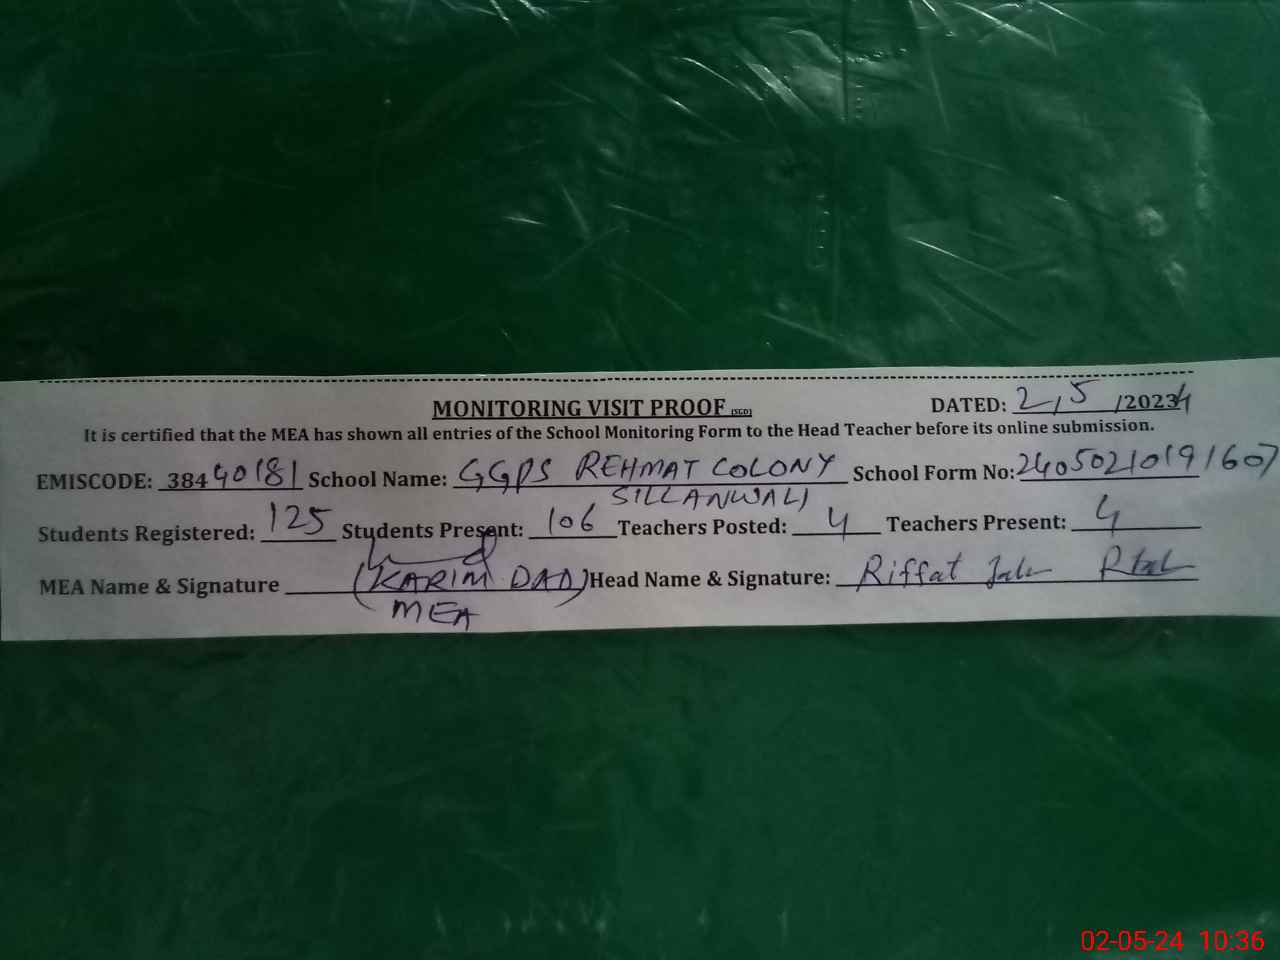 MONITORING VISIT PROOF (SGD) DATED: 2/5/2024
It is certified that the MEA has shown all entries of the School Monitoring Form to the Head Teacher before its online submission.
EMISCODE: 38440181 School Name: GGPS REHMAT COLONY School Form No: 24050210191607
SILLANWALI
Students Registered: 125 Students Present: 106 Teachers Posted: 4 Teachers Present: 4
MEA Name & Signature (KARIM DAD) Head Name & Signature: Riffat
MEA
02-05-24 10:36